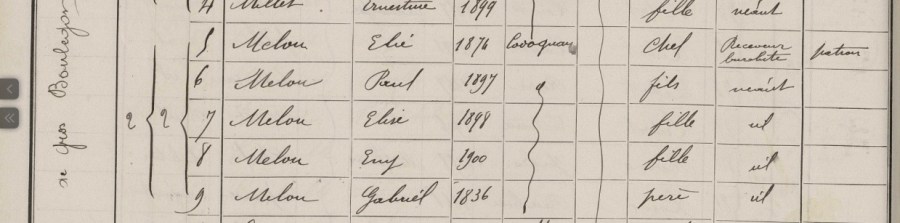 4 Millet . Ernestine 1899 fille néant
5 Melou Elié 1876 chef Receveur buraliste patron
6 Melou Paul 1897 fils néant
7 Melou Elise 1898 fille id
8 Melou Emy 1900 fille id
9 Melou Gabriel 1836 père id
2 2